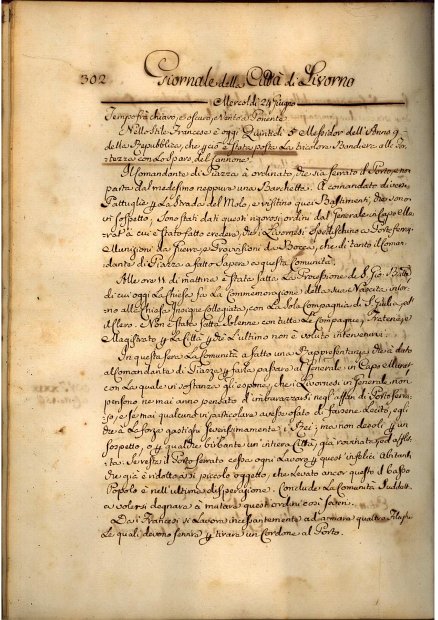 302 Giornale della Città di Livorno
Mercoldì 24 Giugno
Tempo frà chiaro, e oscuro, Vento a Ponente
Nello Stile Francese è oggi Quintidi 5 Messidor dell'Anno 9
della Repubblica, che perciò è stata posta la tricolore Bandiera alle For-
tezza con lo sparo del Cannone.
Il Comandante di Piazza à ordinato, che sia serrato il Porto, e non
parta dal medesimo neppure una Barchetta: A comandato diverse
Pattuglie p la Strada del Molo, e visitino quei Bastimenti, che sono
in sospetto, Sono stati dati questi rigorosi ordini dal Generale in Capo Mu
rat a cui è stato fatto credere, che i Livornesi spedischino a Porto ferrajo
Munizioni da Guerra, e Provvisioni da Bocca, che di tanto il Coman-
dante di Piazza a fatto sapere a questa Comunità.
Alle ore 11 di mattina è stata fatta la Processione di S. Gio: Batta
di cui oggi la Chiesa fa la Commemorazione della sua Nascita intor-
no alla Chiesa Insigne Collegiata, con la sola Compagnia di S. Giulia, ed
il Clero. Non è stata fatta solenne con tutte le Compagnie, Fratenie, e
Magistrato p la Città p che l'ultimo non è voluto intervenirvi.
In questa sera la Comunità a fatto una Rappresentanza, che a dato
al Comandante di Piazza p farla passare al Generale in Capo Murat
con la quale in sostanza gli espone, che i Livornesi in generale non
possono ne mai anno pensato d'imbarazzarsi negli affari di Porto ferra-
jo, e se mai qualcuno in particolare avesse osato di farsene lecito, egli
che à la forza gastighi severissimamente i Rei; ma non devesi p un
sospetto, o p qualche birbante un'intiera Città, già rovinata, ed afflit-
ta. Se resta il Porto serrato cessa ogni Lavoro p quest'infelici Abitanti
che già è ridotto a sì piccolo oggetto, che levato ancor questo il basso
Popolo è nell'ultima disperazione. Conclude la Comunità suddett.
a volersi degnare a mutare questi ordini così severi.
Dai Francesi si lavora incessantemente ad armare quattro
le quali devono servire p tirare un Cordone al Porto.